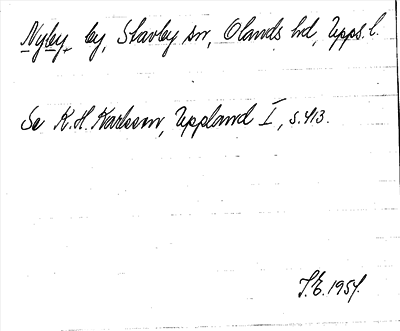 Nyby, by, Stavby sn, Olands hd, Upps. l.
Se K. H. Karlsson, Uppland I, s. 413.
T. E. 1954.